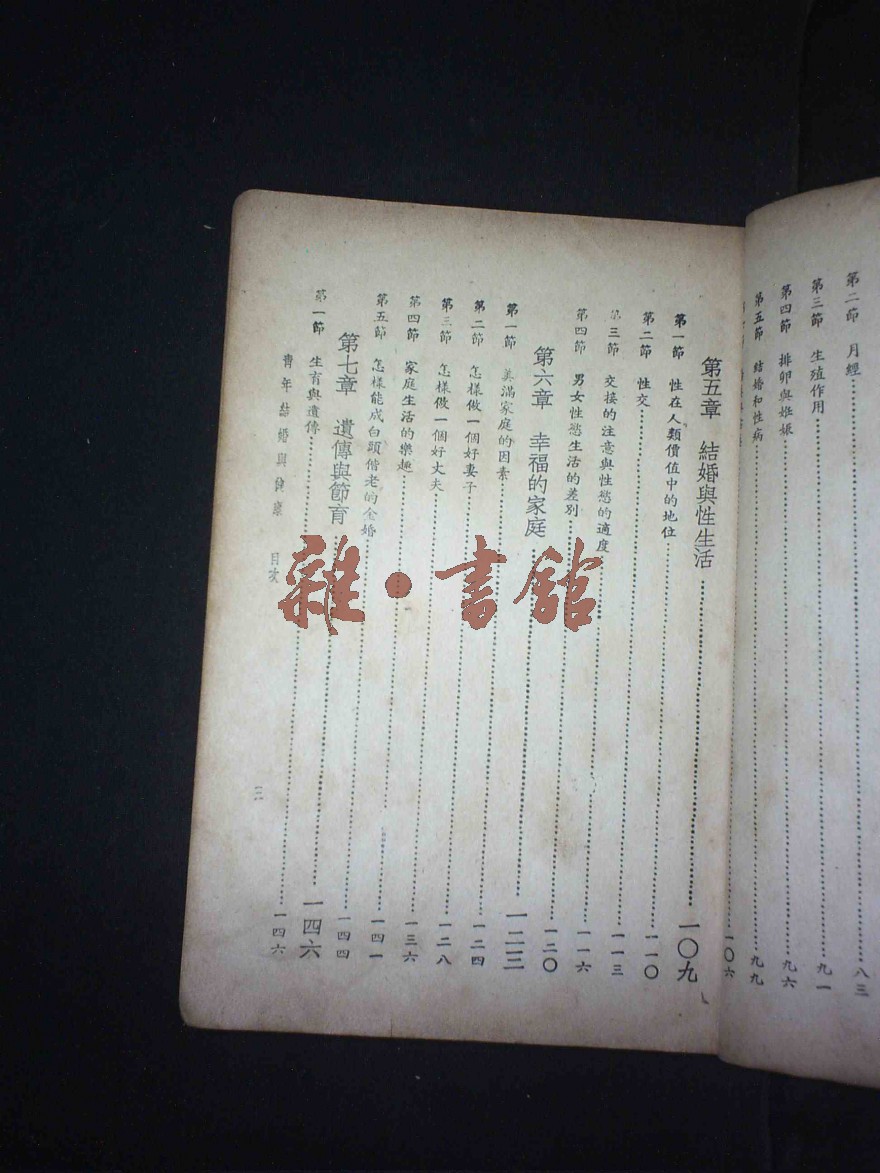 第二節 月經 八三
第三節 生殖作用 九一
第四節 排卵與姙娠 九六
第五節 結婚和性病 九九
一〇六
第五章 結婚與性生活 一〇九
第一節 性在人類價值中的地位 一一〇
第二節 性交 一一三
第三節 交接的注意與性慾的適度 一一六
第四節 男女性慾生活的差別 一二〇
第六章 幸福的家庭 一二三
第一節 美滿家庭的因素 一二四
第二節 怎樣做一個好妻子 一二八
第三節 怎樣做一個好丈夫 一三六
第四節 家庭生活的樂趣 一四一
第五節 怎樣能成白頭偕老的金婚 一四四
第七章 遺傳與節育 一四六
第一節 生育與遺傳 一四六
青年結婚與健康 目次
三
雜·書館